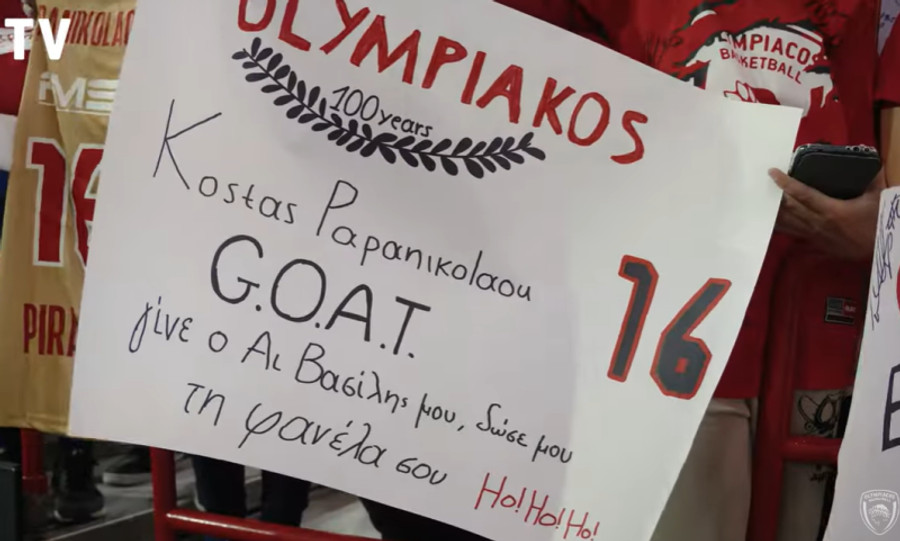 TV
OLYMPIAKOS
100 years
Kostas Papanikolaou
G.O.A.T.
γίνε ο Αι Βασίλης μου, δώσε μου
τη φανέλα σου
Ho! Ho! Ho!
16
16
BASKETBALL
OLYMPIACOS